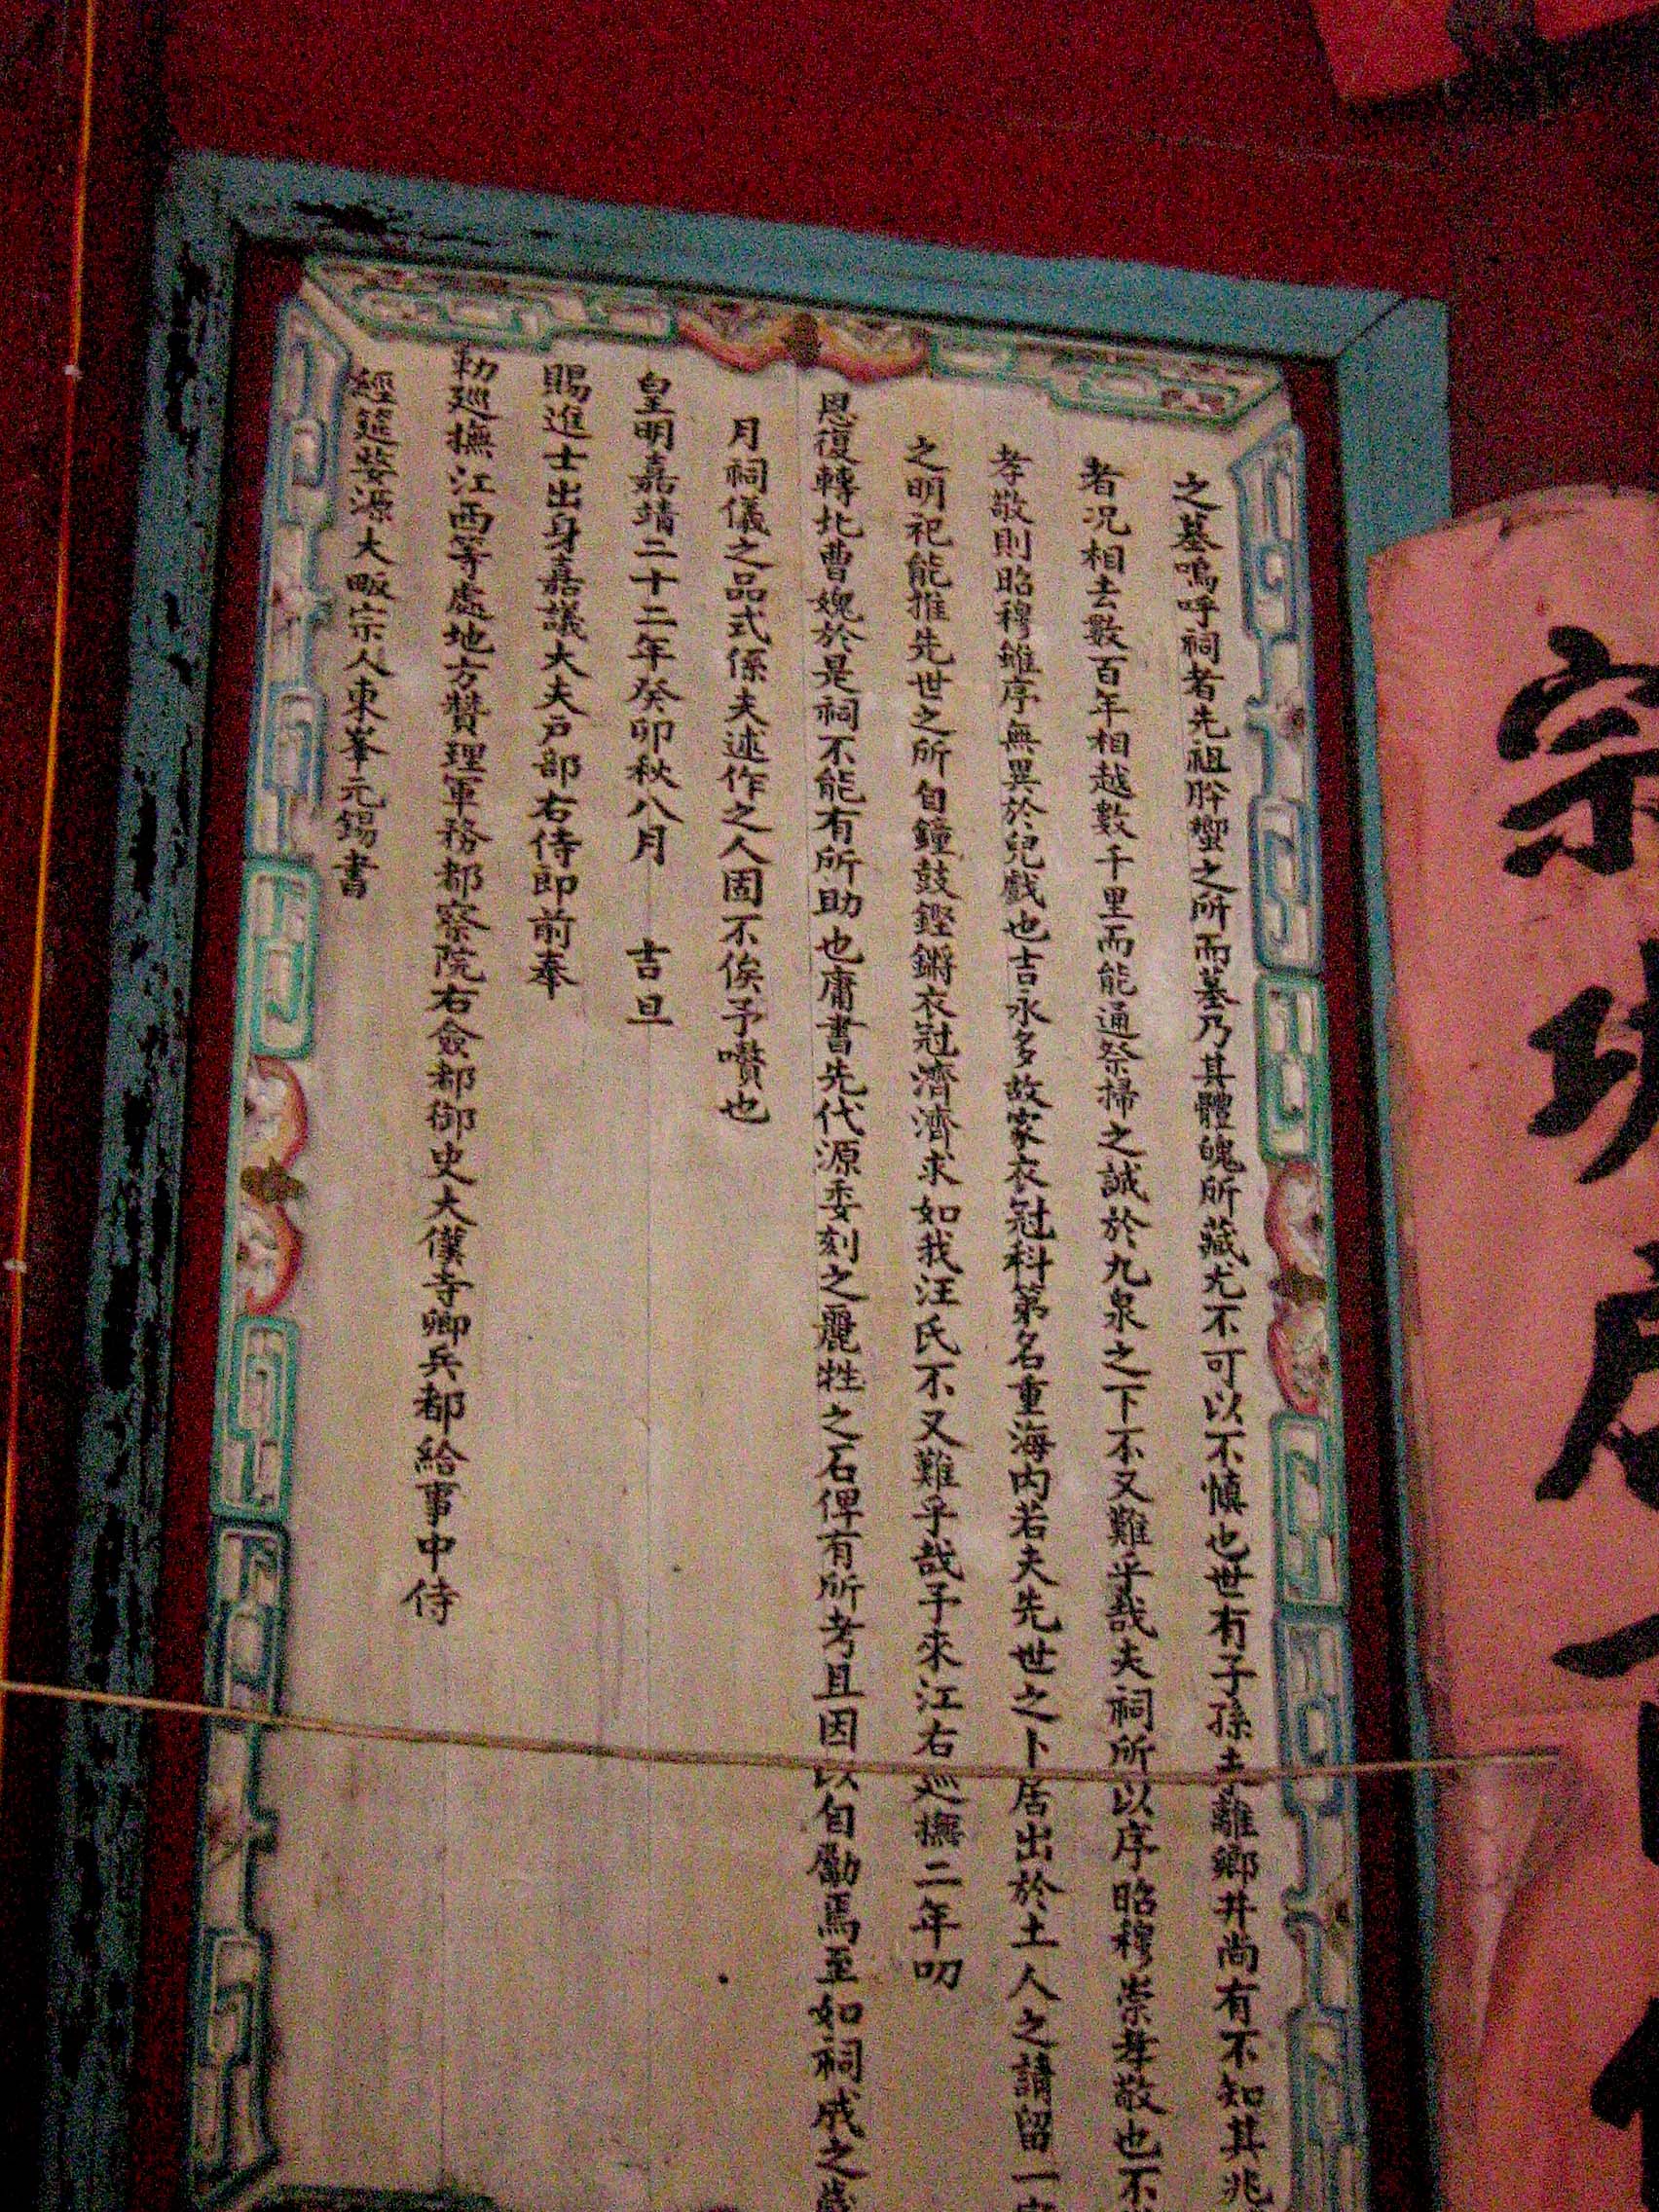 之墓嗚呼祠者先祖肸蠁之所而墓乃其體魄所藏尤不可以不慎也世有子孫去離鄉井尚有不知其兆
者况相去數百年相越數千里而能通祭掃之誠於九泉之下不又難乎哉夫祠所以序昭穆崇孝敬也不
孝敬則昭穆雖序無異於兒戲也吉永多故家衣冠科第名重海内若夫先世之卜居出於土人之請留一
之明祀能推先世之所自鐘鼓鏗鏘衣冠濟濟求如我汪氏不又難乎哉予來江右巡撫二年叨
恩復轉北曹媿於是祠不能有所助也庸書先代源委刻之麗牲之石俾有所考且因以自勵焉至如祠成之歲
月祠儀之品式係夫述作之人固不俟予嚽也
皇明嘉靖二十二年癸卯秋八月 吉旦
賜進士出身嘉議大夫戸部右侍郎前奉
勅廵撫江西等處地方贊理軍務都察院右僉都御史大僕寺卿兵都給事中侍
經筵婺源大畈宗人東峯元錫書
宗